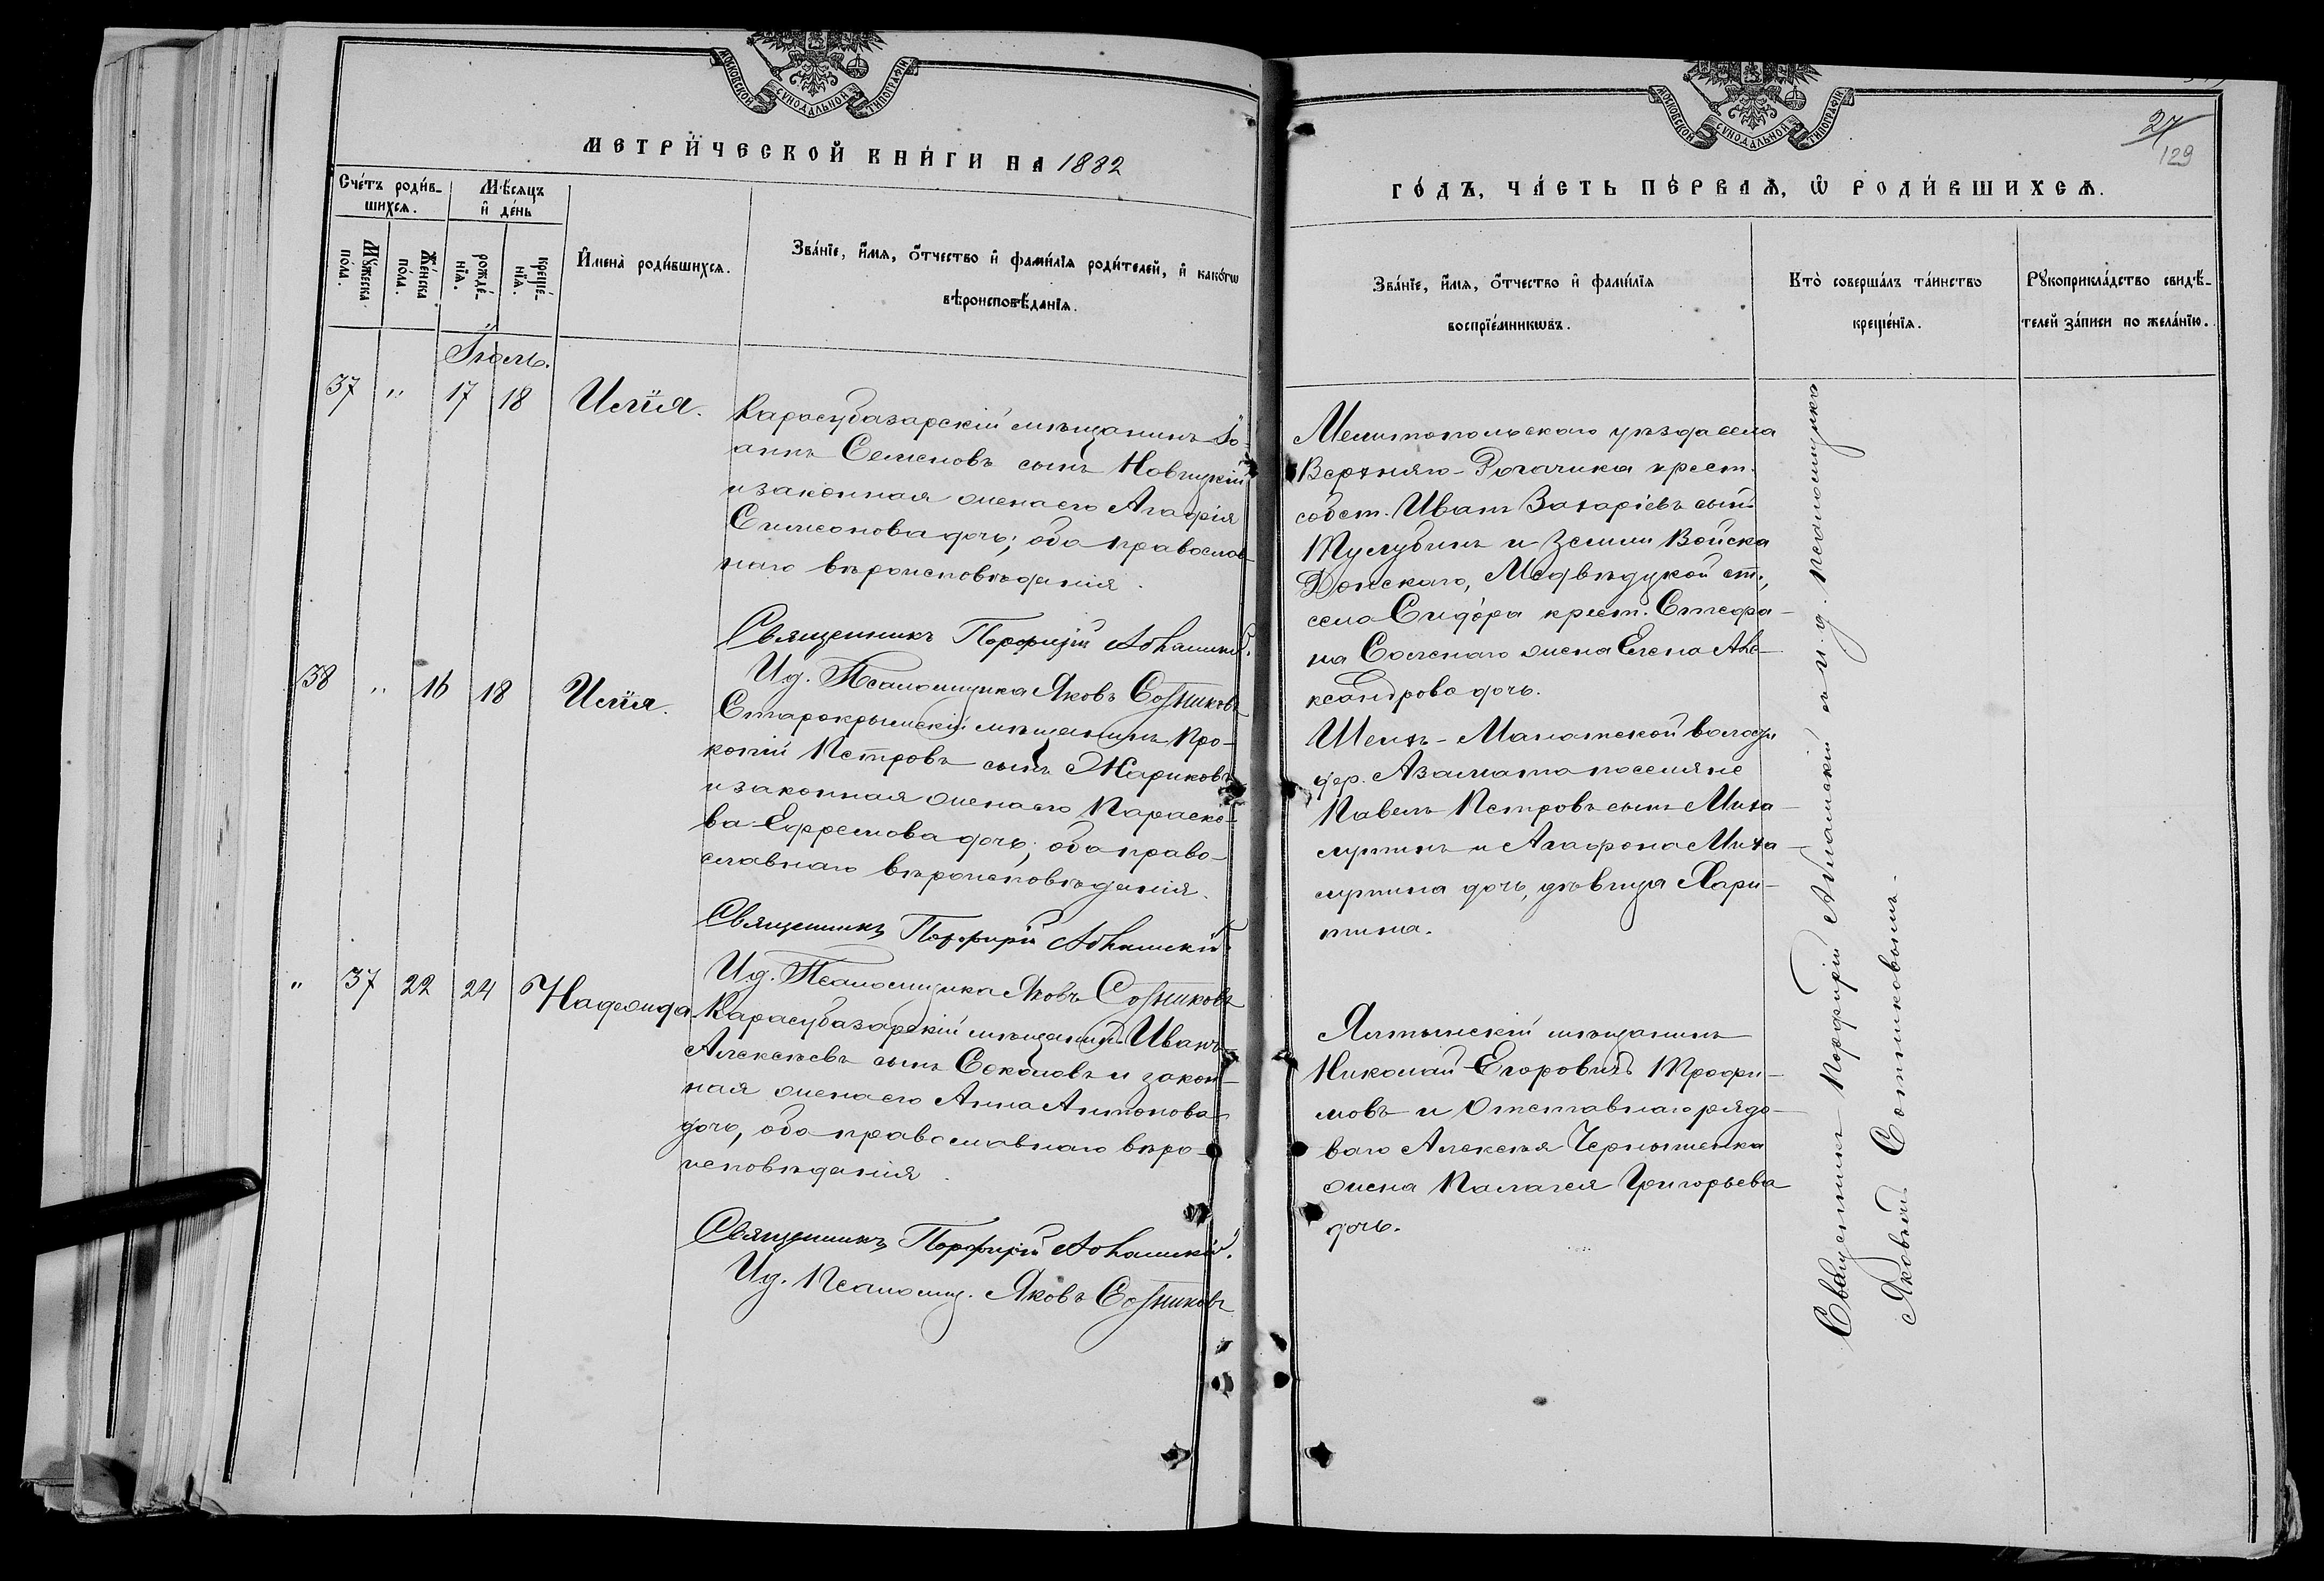 МОСКОВСКОЙ СѴНОДАЛЬНОЙ ТИПОГРАФІИ
МЕТРИ́ЧЕСКОЙ КНИ́ГИ НА 1882
Сче́тъ роди́в-
шихсѧ.
Мѣ́сѧцъ
и҆ де́нь
Мꙋ́жеска
по́ла.
Же́нска
по́ла.
рожде́-
нїѧ.
креще́-
нїѧ.
И҆мена̀ роди́вшихсѧ.
Зва́нїе, и҆́мѧ, ѻ҆́тчество и҆ фами́лїѧ роди́телей, и҆ како́гѡ
вѣроисповѣ́данїѧ.
Іюль.
37 " 17 18 Илія.
Карасубазарскій мѣщанинъ Іо-
аннъ Семеновъ сынъ Новицкій
и законная жена его Агафія
Симеонова дочь; оба православ-
наго вѣроисповѣданія.
Священникъ Порфирій
И.д. Псаломщика Яковъ Сотниковъ
38 " 16 18 Илія.
Старокрымскій мѣщанинъ Про-
копій Петровъ сынъ Жариковъ
и законная жена его Параске-
ва Ефремова дочь; оба право-
славнаго вѣроисповѣданія.
Священникъ Порфирій
И.д. Псаломщика Яковъ Сотниковъ
" 37 22 24
Карасубазарскій мѣщанинъ Иванъ
Алексѣевъ сынъ Соколовъ и закон-
ная жена его Анна Антонова
дочь, оба православнаго вѣро-
исповѣданія.
Священникъ Порфирій
И.д. Псаломщ. Яковъ Сотниковъ
МОСКОВСКОЙ СѴНОДАЛЬНОЙ ТИПОГРАФІИ
27
129
ГО́ДЪ, ЧА́СТЬ ПЕ́РВАѦ, Ѡ҆ РОДИ́ВШИХСѦ.
Зва́нїе, и҆́мѧ, ѻ҆́тчество и҆ фами́лїѧ
воспрїе́мникѡвъ.
Кто̀ соверша́лъ та́инство
креще́нїѧ.
Рꙋкоприкла́дство свидѣ́-
телей за́писи по жела́нїю.
Мелитопольскаго уѣзда села
Верхняго-Рогачика крест.
собст. Иванъ Захаріевъ сынъ
и Земли Войска
Донскаго, Медвѣдцкой ст.,
села Сидора крест. Стефа-
на жена Елена Але-
ксандрова дочь.
Шейхъ-Манайской волости
дер. Азамата поселяне
Павелъ Петровъ сынъ Миха-
и Агафона Миха-
дочь, дѣвица Хари-
тина.
Ялтынскій мѣщанинъ
Николай Егоровичъ Трофи-
мовъ и Отставнаго рядо-
ваго Алексѣя Чернышенка
жена Палагея Григорьева
дочь.
Священникъ Порфирій и и.д. псаломщика
Яковъ Сотниковымъ.